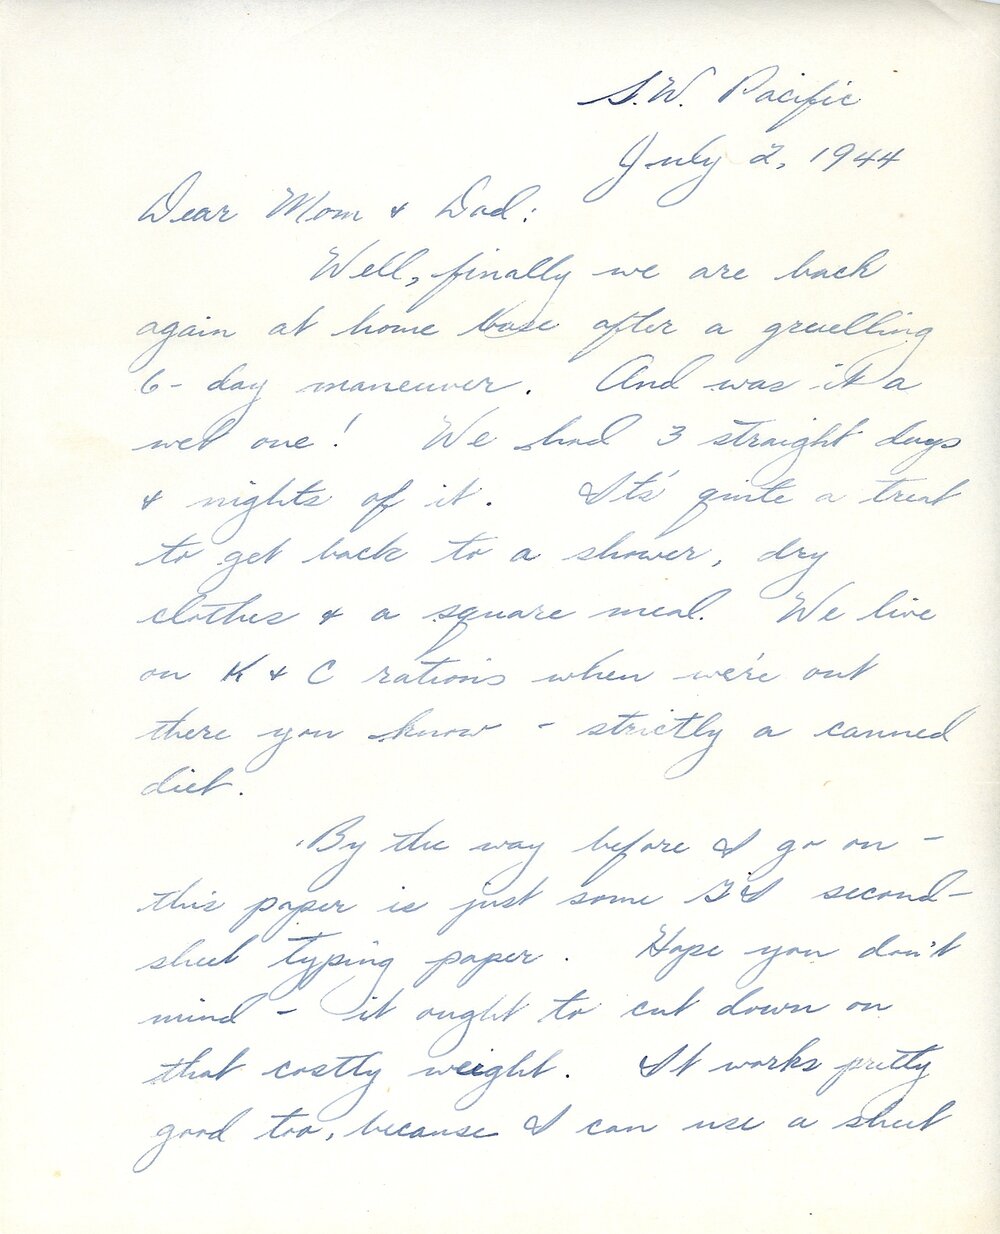 S.W. Pacific
July 2, 1944
Dear Mom & Dad:
Well, finally we are back
again at home base after a gruelling
6-day maneuver. And was it a
wet one! We had 3 straight days
& nights of it. It's quite a treat
to get back to a shower, dry
clothes & a square meal. We live
on K & C rations when we're out
there you know - strictly a canned
diet.
By the way before I go on -
this paper is just some GI second-
sheet typing paper. Hope you don't
mind - it ought to cut down on
that costly weight. It works pretty
good too, because I can use a sheet